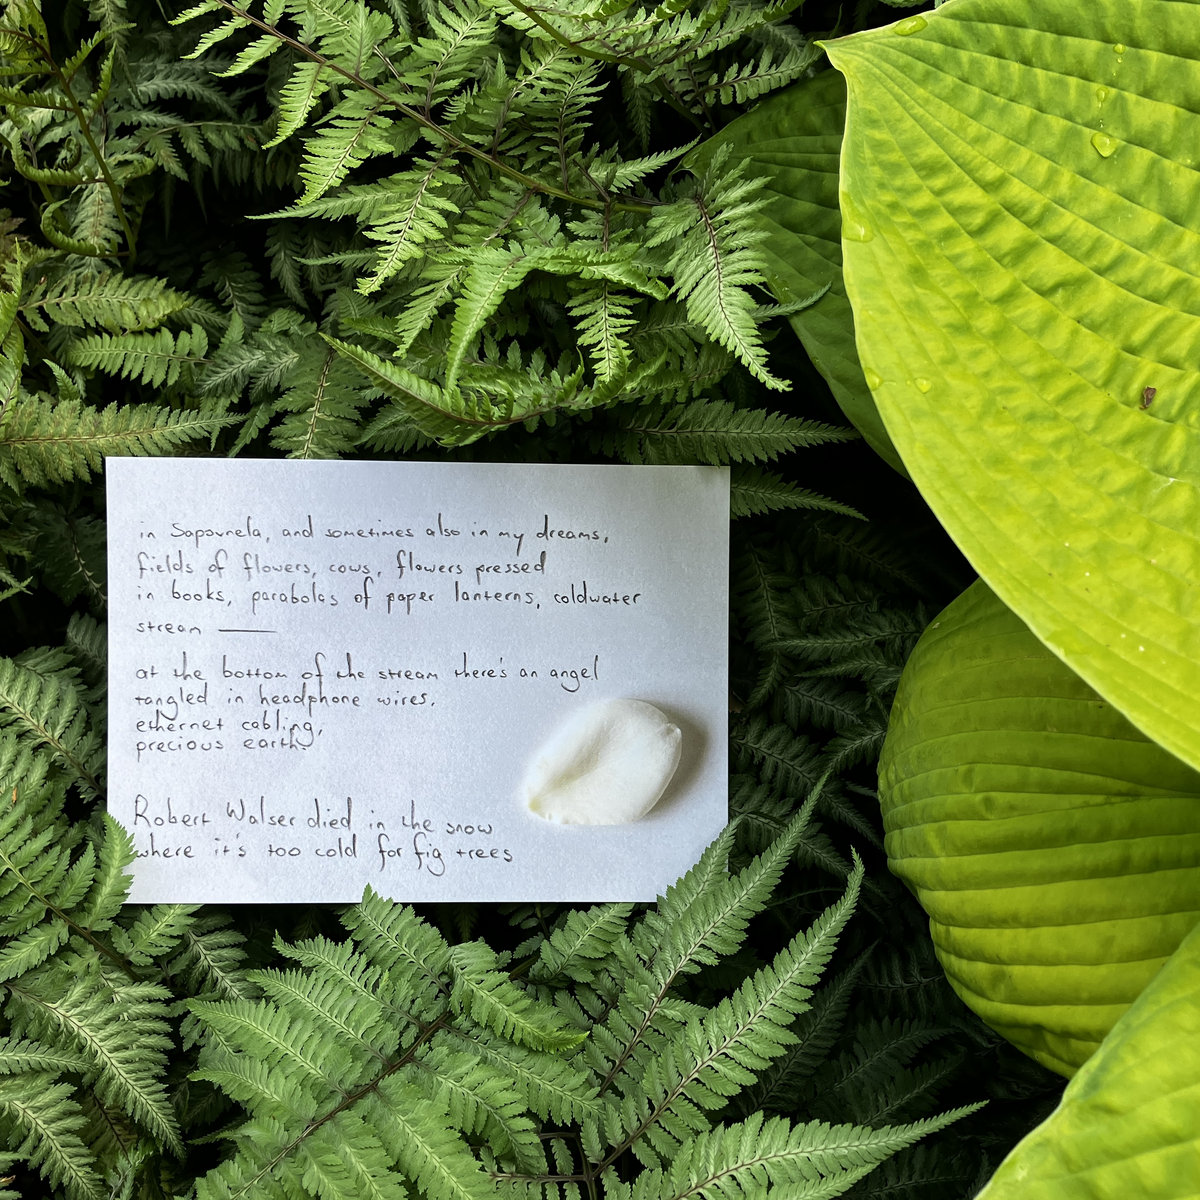 in Sapovnela, and sometimes also in my dreams,
fields of flowers, cows, flowers pressed
in books, parabolas of paper lanterns, coldwater
stream ——
at the bottom of the stream there's an angel
tangled in headphone wires,
ethernet cabling,
precious earth
Robert Walser died in the snow
where it's too cold for fig trees